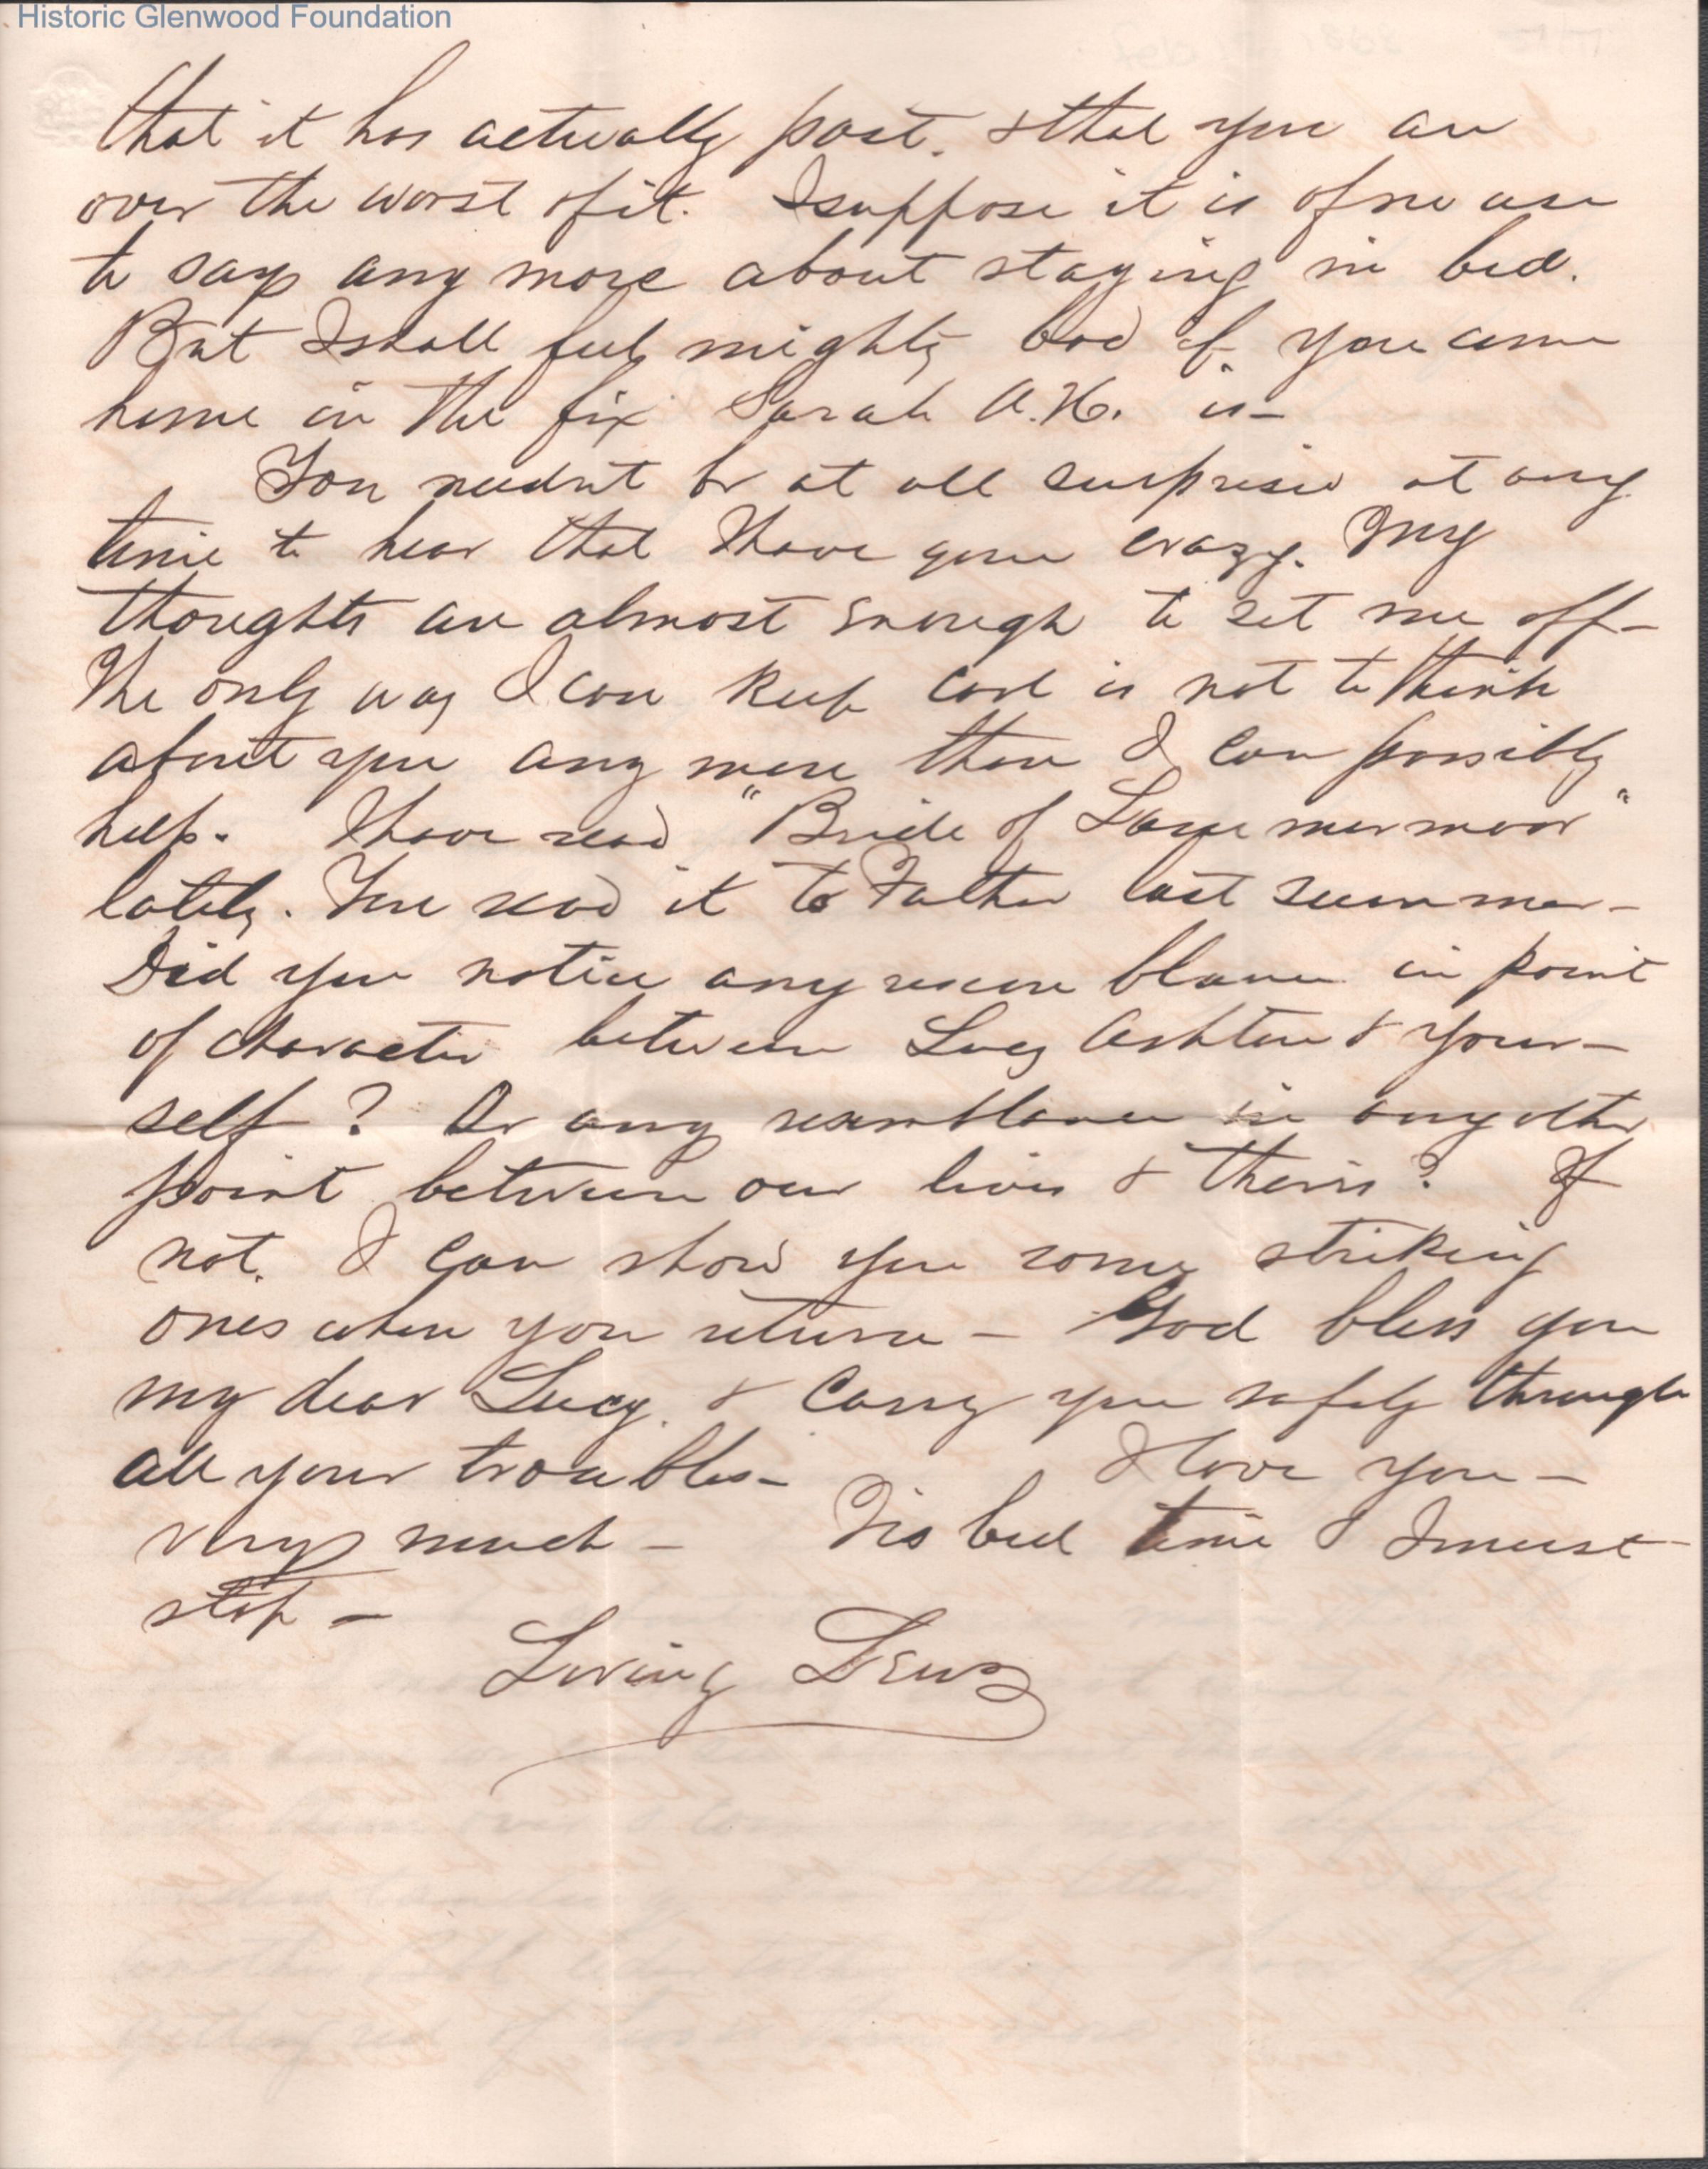 Historic Glenwood Foundation
that it has actually past. & that you are
over the worst of it. I suppose it is of no use
to say any more about staying in bed.
But I shall feel mighty bad if you come
home in the fix Sarah A. H. is—
You needn't be at all surprised at any
time to hear that I have gone crazy. My
thoughts are almost enough to set me off—
The only way I can keep cool is not to think
about you any more than I can possibly
help. I have read "Bride of Lammermoor"
lately. You read it to Father last summer—
Did you notice any resemblance in point
of character between Lucy Ashton & your-
self? Or any resemblance in any other
point between our lives & theirs? If
not. I can show you some striking
ones when you return— God bless you
my dear Lucy. & carry you safely through
all your troubles— I love you—
very much— Tis bed time & I must
stop—
Loving Lewis